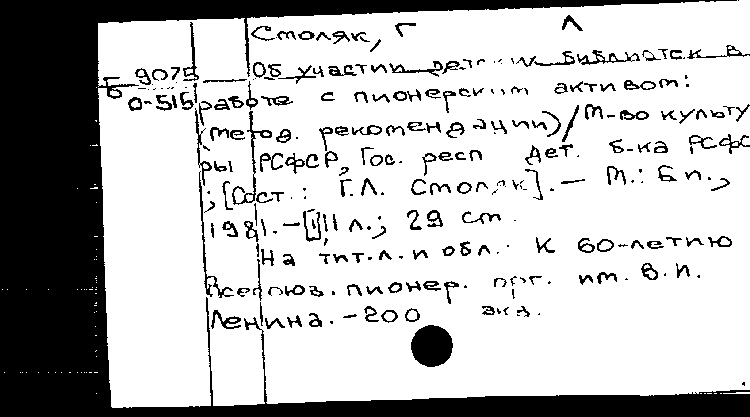 Столяк, Г Л
Б 9075 Об участии детских библиотек в
0-515 работе с пионерским активом:
(метод. рекомендации)/М-во культу
ры РСФСР, Гос. респ дет. б-ка РСФС
; [Сост.: Г.Л. Столяк]. — М.: Б.и.,
1981. — [1], 11 л.; 29 см.
На тит.л. и обл.: К 60-летию
Всесоюз. пионер. орг. им. В.И.
Ленина. - 200 экз.